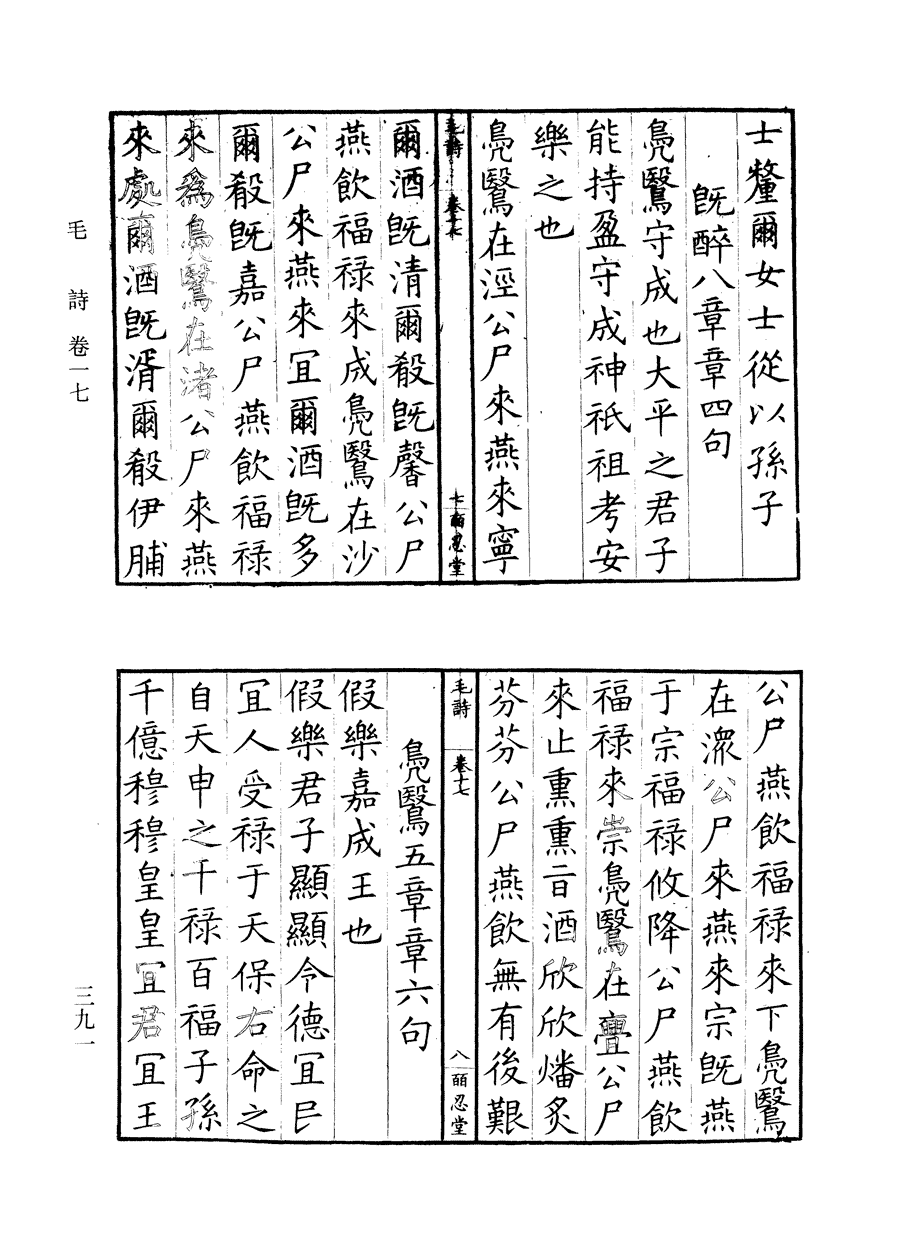 士釐爾女士從以孫子
既醉八章章四句
鳧鷖守成也大平之君子
能持盈守成神祇祖考安
樂之也
鳧鷖在涇公尸來燕來寧
毛詩 卷十七
七 皕忍堂
爾酒既清爾殽既馨公尸
燕飲福祿來成鳧鷖在沙
公尸來燕來冝爾酒既多
爾殽既嘉公尸燕飲福祿
來爲鳧鷖在渚公尸來燕
來處爾酒既湑爾殽伊脯
毛詩 卷一七
公尸燕飲福祿來下鳧鷖
在潀公尸來燕來宗既燕
于宗福祿攸降公尸燕飲
福祿來崇鳧鷖在亹公尸
來止熏熏旨酒欣欣燔炙
芬芬公尸燕飲無有後艱
毛詩 卷十七
八 皕忍堂
鳧鷖五章章六句
假樂嘉成王也
假樂君子顯顯令德冝民
冝人受祿于天保右命之
自天申之千祿百福子孫
千億穆穆皇皇冝君冝王
三九一